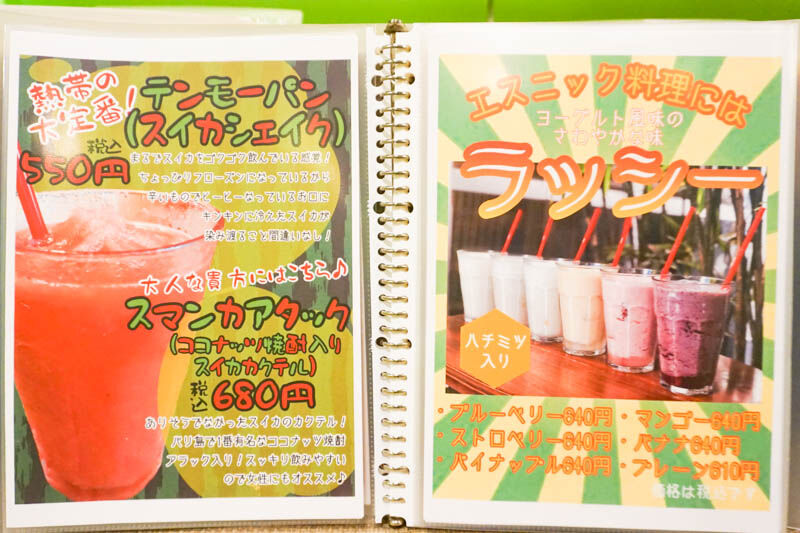 熱帯の
大定番!
テンモーパン
(スイカシェイク)
税込
550円
まるでスイカをゴクゴク飲んでいる感覚!
ちょっぴりフローズンになっているから
辛いものでヒーヒーなっているお口に
キンキンに冷えたスイカが
染み渡ること間違いなし!
大人な貴方にはこちら♪
スマンカアタック
(ココナッツ焼酎入り
スイカカクテル)
税込
680円
ありそうでなかったスイカのカクテル!
バリ島で1番有名なココナッツ焼酎
アラック入り!スッキリ飲みやすい
ので女性にもオススメ♪
エスニック料理には
ヨーグルト風味の
さわやかな味
ラッシー
ハチミツ
入り
・ブルーベリー640円
・ストロベリー640円
・パイナップル640円
・マンゴー640円
・バナナ640円
・プレーン610円
価格は税込です